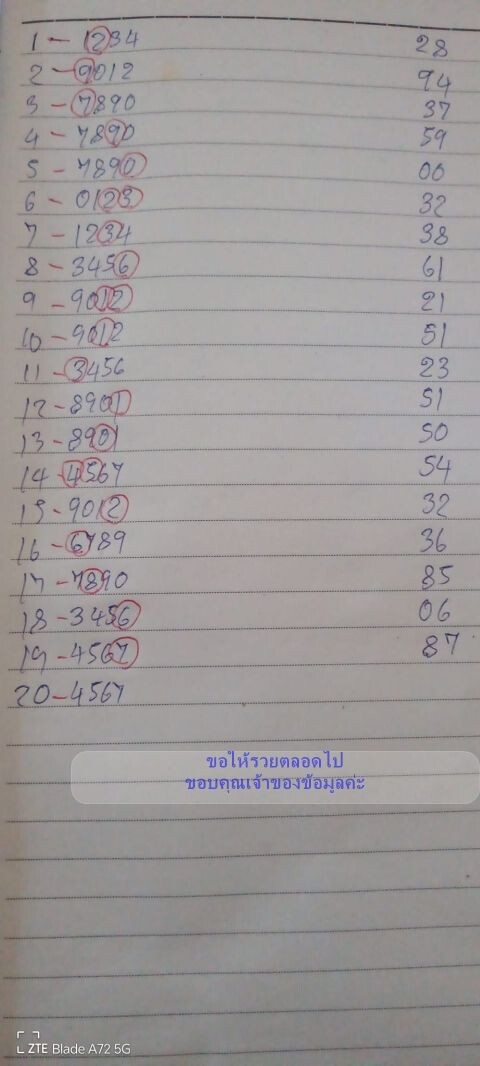 1 - 1234 28
2 - 9012 94
3 - 7890 37
4 - 7890 59
5 - 7890 00
6 - 0123 32
7 - 1234 38
8 - 3456 61
9 - 9012 21
10 - 9012 51
11 - 3456 23
12 - 8901 51
13 - 8901 50
14 - 4567 54
15 - 9012 32
16 - 6789 36
17 - 7890 85
18 - 3456 06
19 - 4567 87
20 - 4567
ขอให้รวยตลอดไป
ขอบคุณเจ้าของข้อมูลค่ะ
ZTE Blade A72 5G